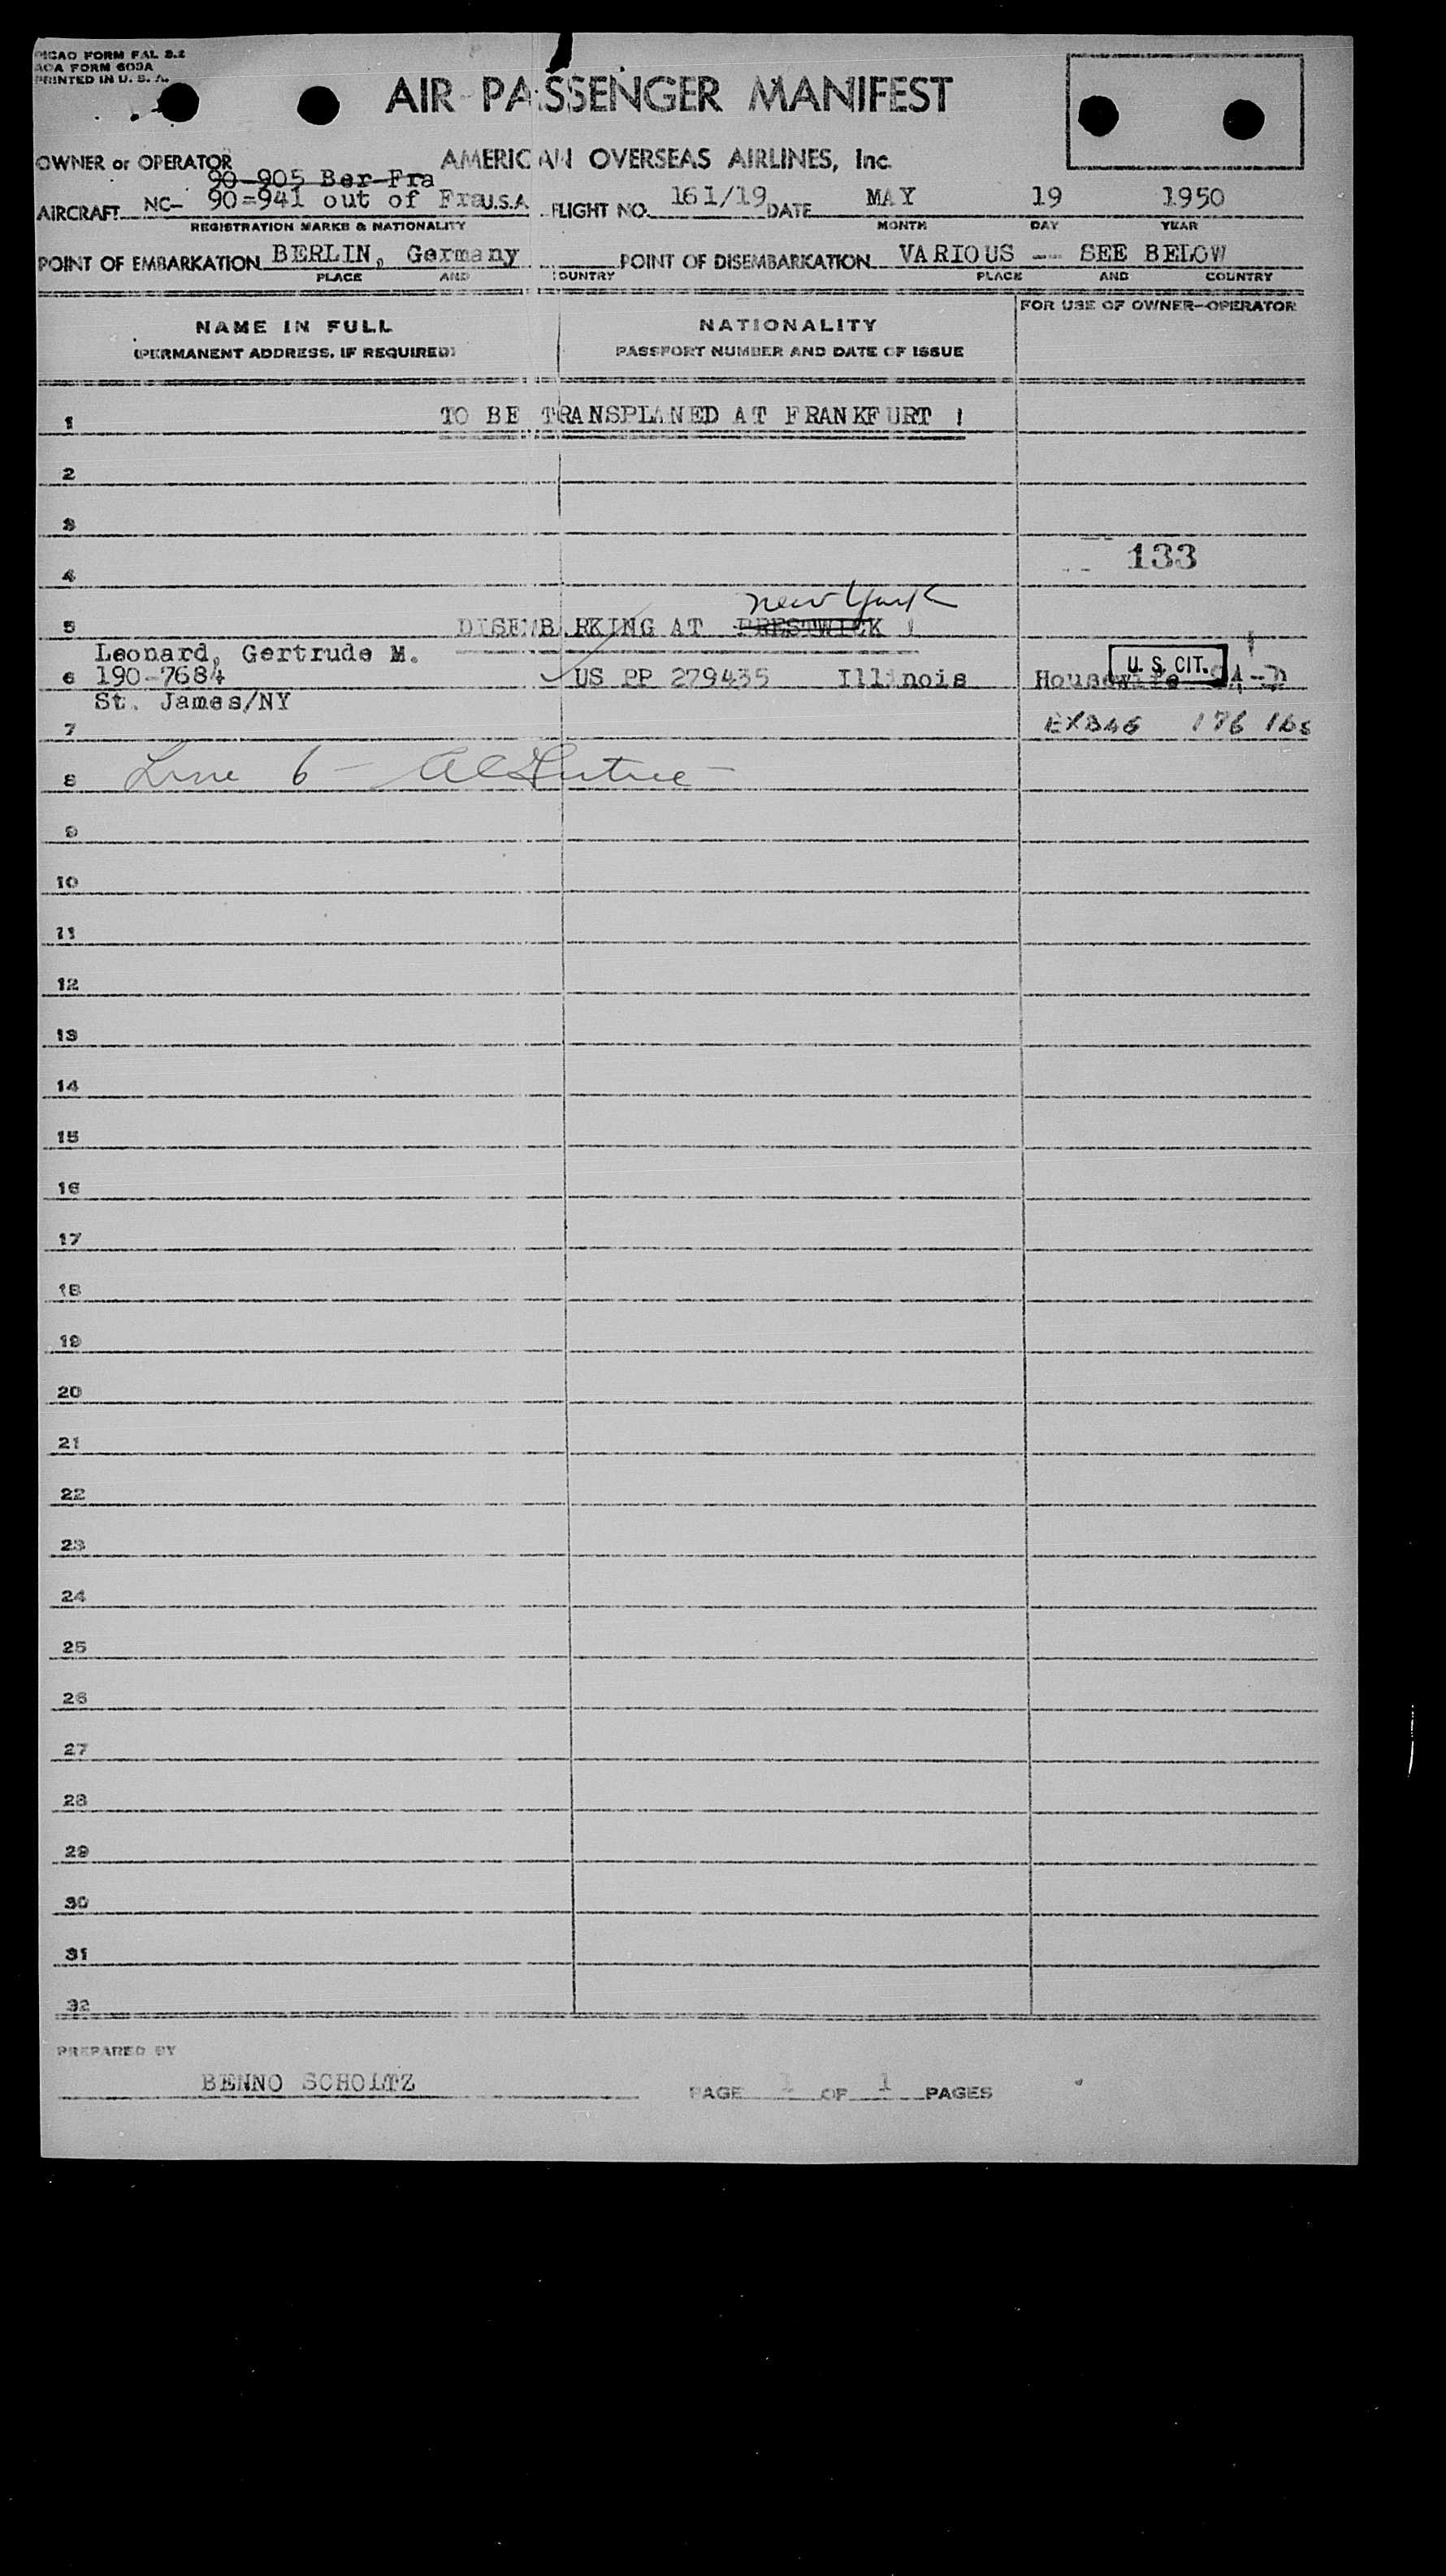 ICAO FORM FAL 2.2
AOA FORM 609A
PRINTED IN U. S. A.
AIR PASSENGER MANIFEST
OWNER or OPERATOR AMERICAN OVERSEAS AIRLINES, Inc.
90-905 Ber-Fra
AIRCRAFT NC- 90-941 out of Fra U.S.A. FLIGHT NO. 161/19 DATE MAY 19 1950
REGISTRATION MARKS & NATIONALITY MONTH DAY YEAR
POINT OF EMBARKATION BERLIN, Germany POINT OF DISEMBARKATION VARIOUS -- SEE BELOW
PLACE AND COUNTRY PLACE AND COUNTRY
FOR USE OF OWNER-OPERATOR
NAME IN FULL NATIONALITY
(PERMANENT ADDRESS, IF REQUIRED) PASSPORT NUMBER AND DATE OF ISSUE
1 TO BE TRANSPLANED AT FRANKFURT !
2
3
133
4
New York
5 DISEMBARKING AT PRESTWICK !
Leonard, Gertrude M.
U. S. CIT.
6 190-7684 US PP 279435 Illinois Housewife
St. James/NY
7 176 lbs
8 Line 6 -
9
10
11
12
13
14
15
16
17
18
19
20
21
22
23
24
25
26
27
28
29
30
31
32
PREPARED BY
BENNO SCHOLTZ PAGE 1 OF 1 PAGES